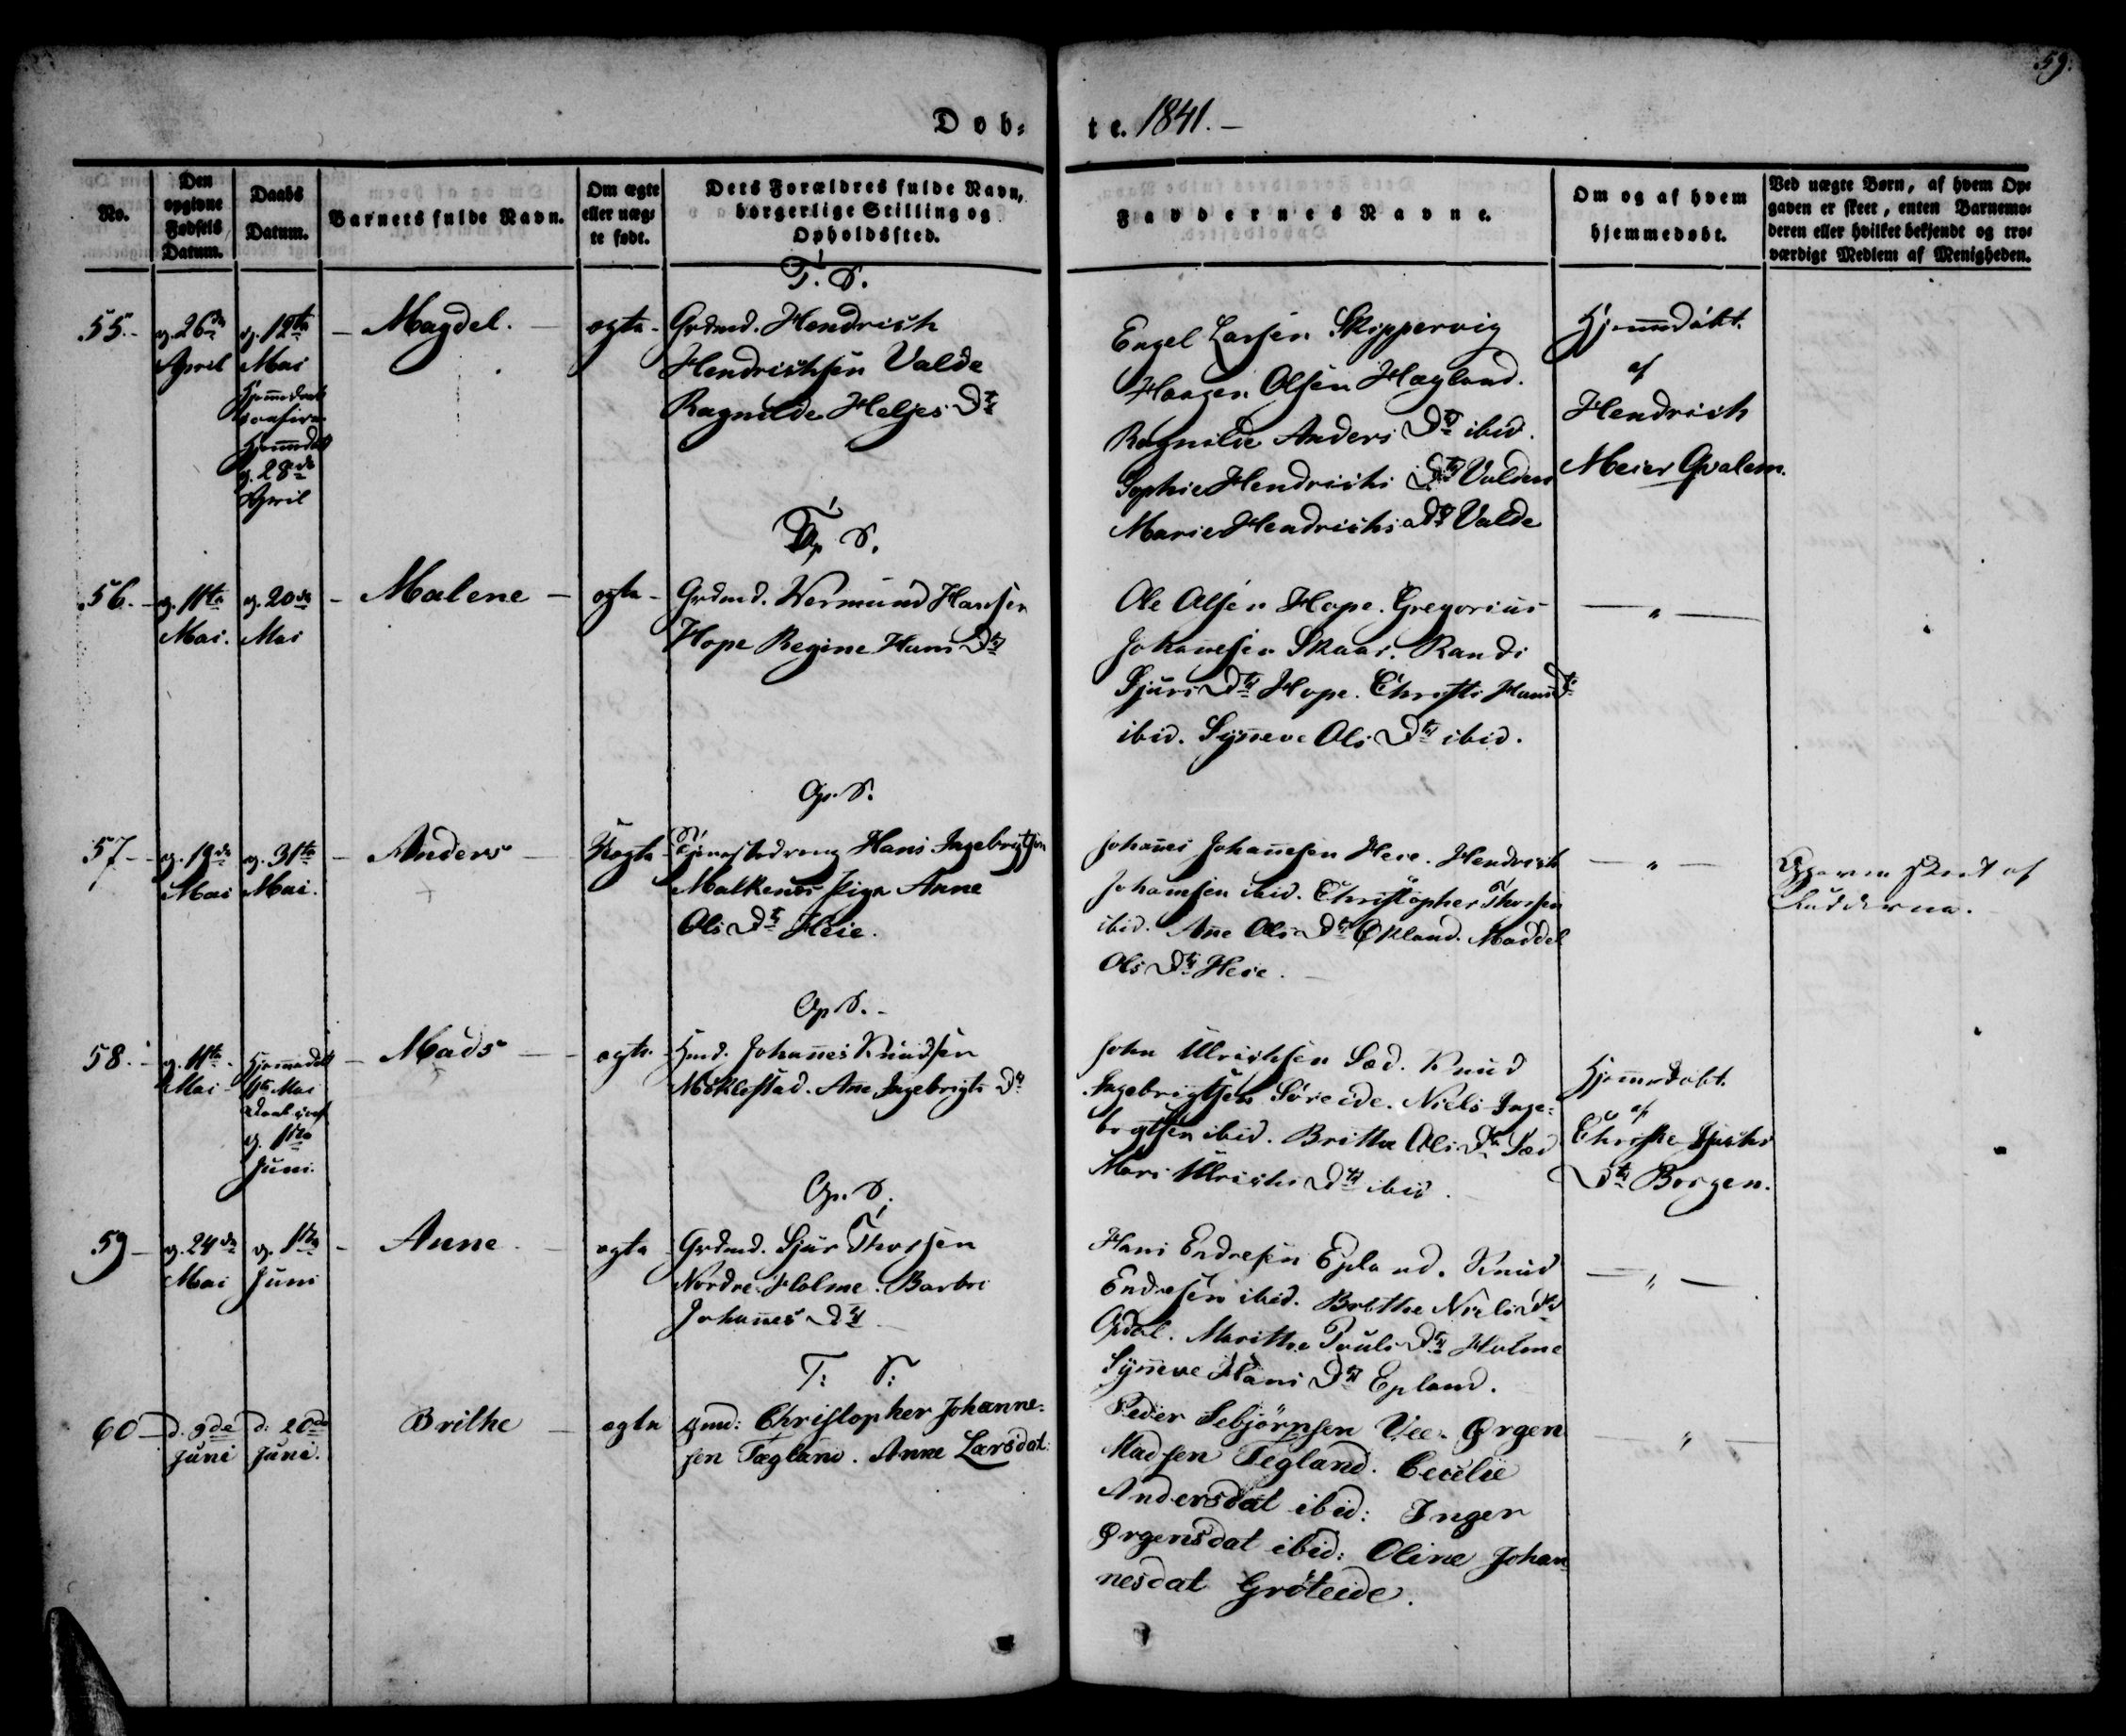 59.
Døb-
te. 1841. –
No.
Den
opgivne
Fødsels
Datum.
Daabs
Datum.
Barnets fulde Navn.
Om ægte
eller uæg-
te født.
Dets Forældres fulde Navn,
borgerlige Stilling og
Opholdssted.
Faddernes Navne.
Om og af hvem
hjemmedøbt.
Ved uægte Børn, af hvem Op-
gaven er skeet, enten Barnemo-
deren eller hvilket bekjendt og tro-
værdigt Medlem af Menigheden.
T. S.
55. –
d. 26de
April
d. 12te
Mai
d. 28de
April
– Magdel. –
ægte –
Grdmd. Hendrich
Hendrichsen Valde
Ragnilde Heljes Dtr
Engel Larsen Skippervig
Haagen Olsen Hægland.
Ragnilde Anders Dtr ibid.
Sophie Hendrichs Dtr Valden
Marie Hendrichs Dtr Valde
Hjemmdøbt.
af
Hendrich
Meier Qvalem.
S.
56. –
d. 11te
Mai.
d. 20de
Mai
– Malene –
ægte –
Grdmd. Wermund Hansen
Hope Regine Hans Dtr
Ole Olsen Hope. Gregorius
Johanesen Skaar. Randi
Sjurs Dtr Hope. Christi Hans Dtr
ibid. Syneve Ols Dtr ibid.
– " –
Op. S.
57 –
d. 19de
Mai
d. 31te
Mai.
– Anders –
Uægte –
Tjenestedreng Hans Ingebrigtsen
Malkenes Pige Anne
Ols Dtr Heie.
Johanes Johanesen Heie. Hendrich
Johansen ibid. Christopher Thorsen
ibid. Ane Ols Dtr Økland. Maddel
Ols Dtr Heie. –
– " –
Opgaven skeet af
Fadderne.
Op S. –
58. –
d. 11te
Mai –
Hjemmedøbt
11te Mai
d. 1ste
Juni.
– Mads –
ægte. –
Hmd. Johanes Knudsen
Møklestad. Ane Ingebrigts Dtr
John Ulrichsen Sæd. Knud
Ingebrigtsen Søreide. Niels Inge-
brigtsen ibid. Britha Ols Dtr Sæd
Mari Ulrichs Dtr ibid.
Hjemmedøbt.
af
Dtr Borgen.
Op. S.
59 –
d. 24de
Mai
d. 1ste
Juni
– Anne –
ægte –
Grdmd. Sjur Thorsen
Nordre Holme. Barbro
Johanes Dtr –
Hans Endresen Epland. Knud
Endresen ibid. Brithe Niels Dtr
Opdal. Marithe Pouls Dtr Holme
Syneve Hans Dtr Epland.
– " –
T: S:
60 –
d. 9de
Juni
d: 20de
Juni.
Brithe –
ægte
Gmd: Christopher Johanne-
sen Tægland. Anne Larsdat:
Peder Sebjørnsen Vee. Ørgen
Madsen Tegland. Cecilie
Andersdat ibid: Inger
Ørgensdat ibid: Oline Johan-
nesdat Grøteide.
– " –